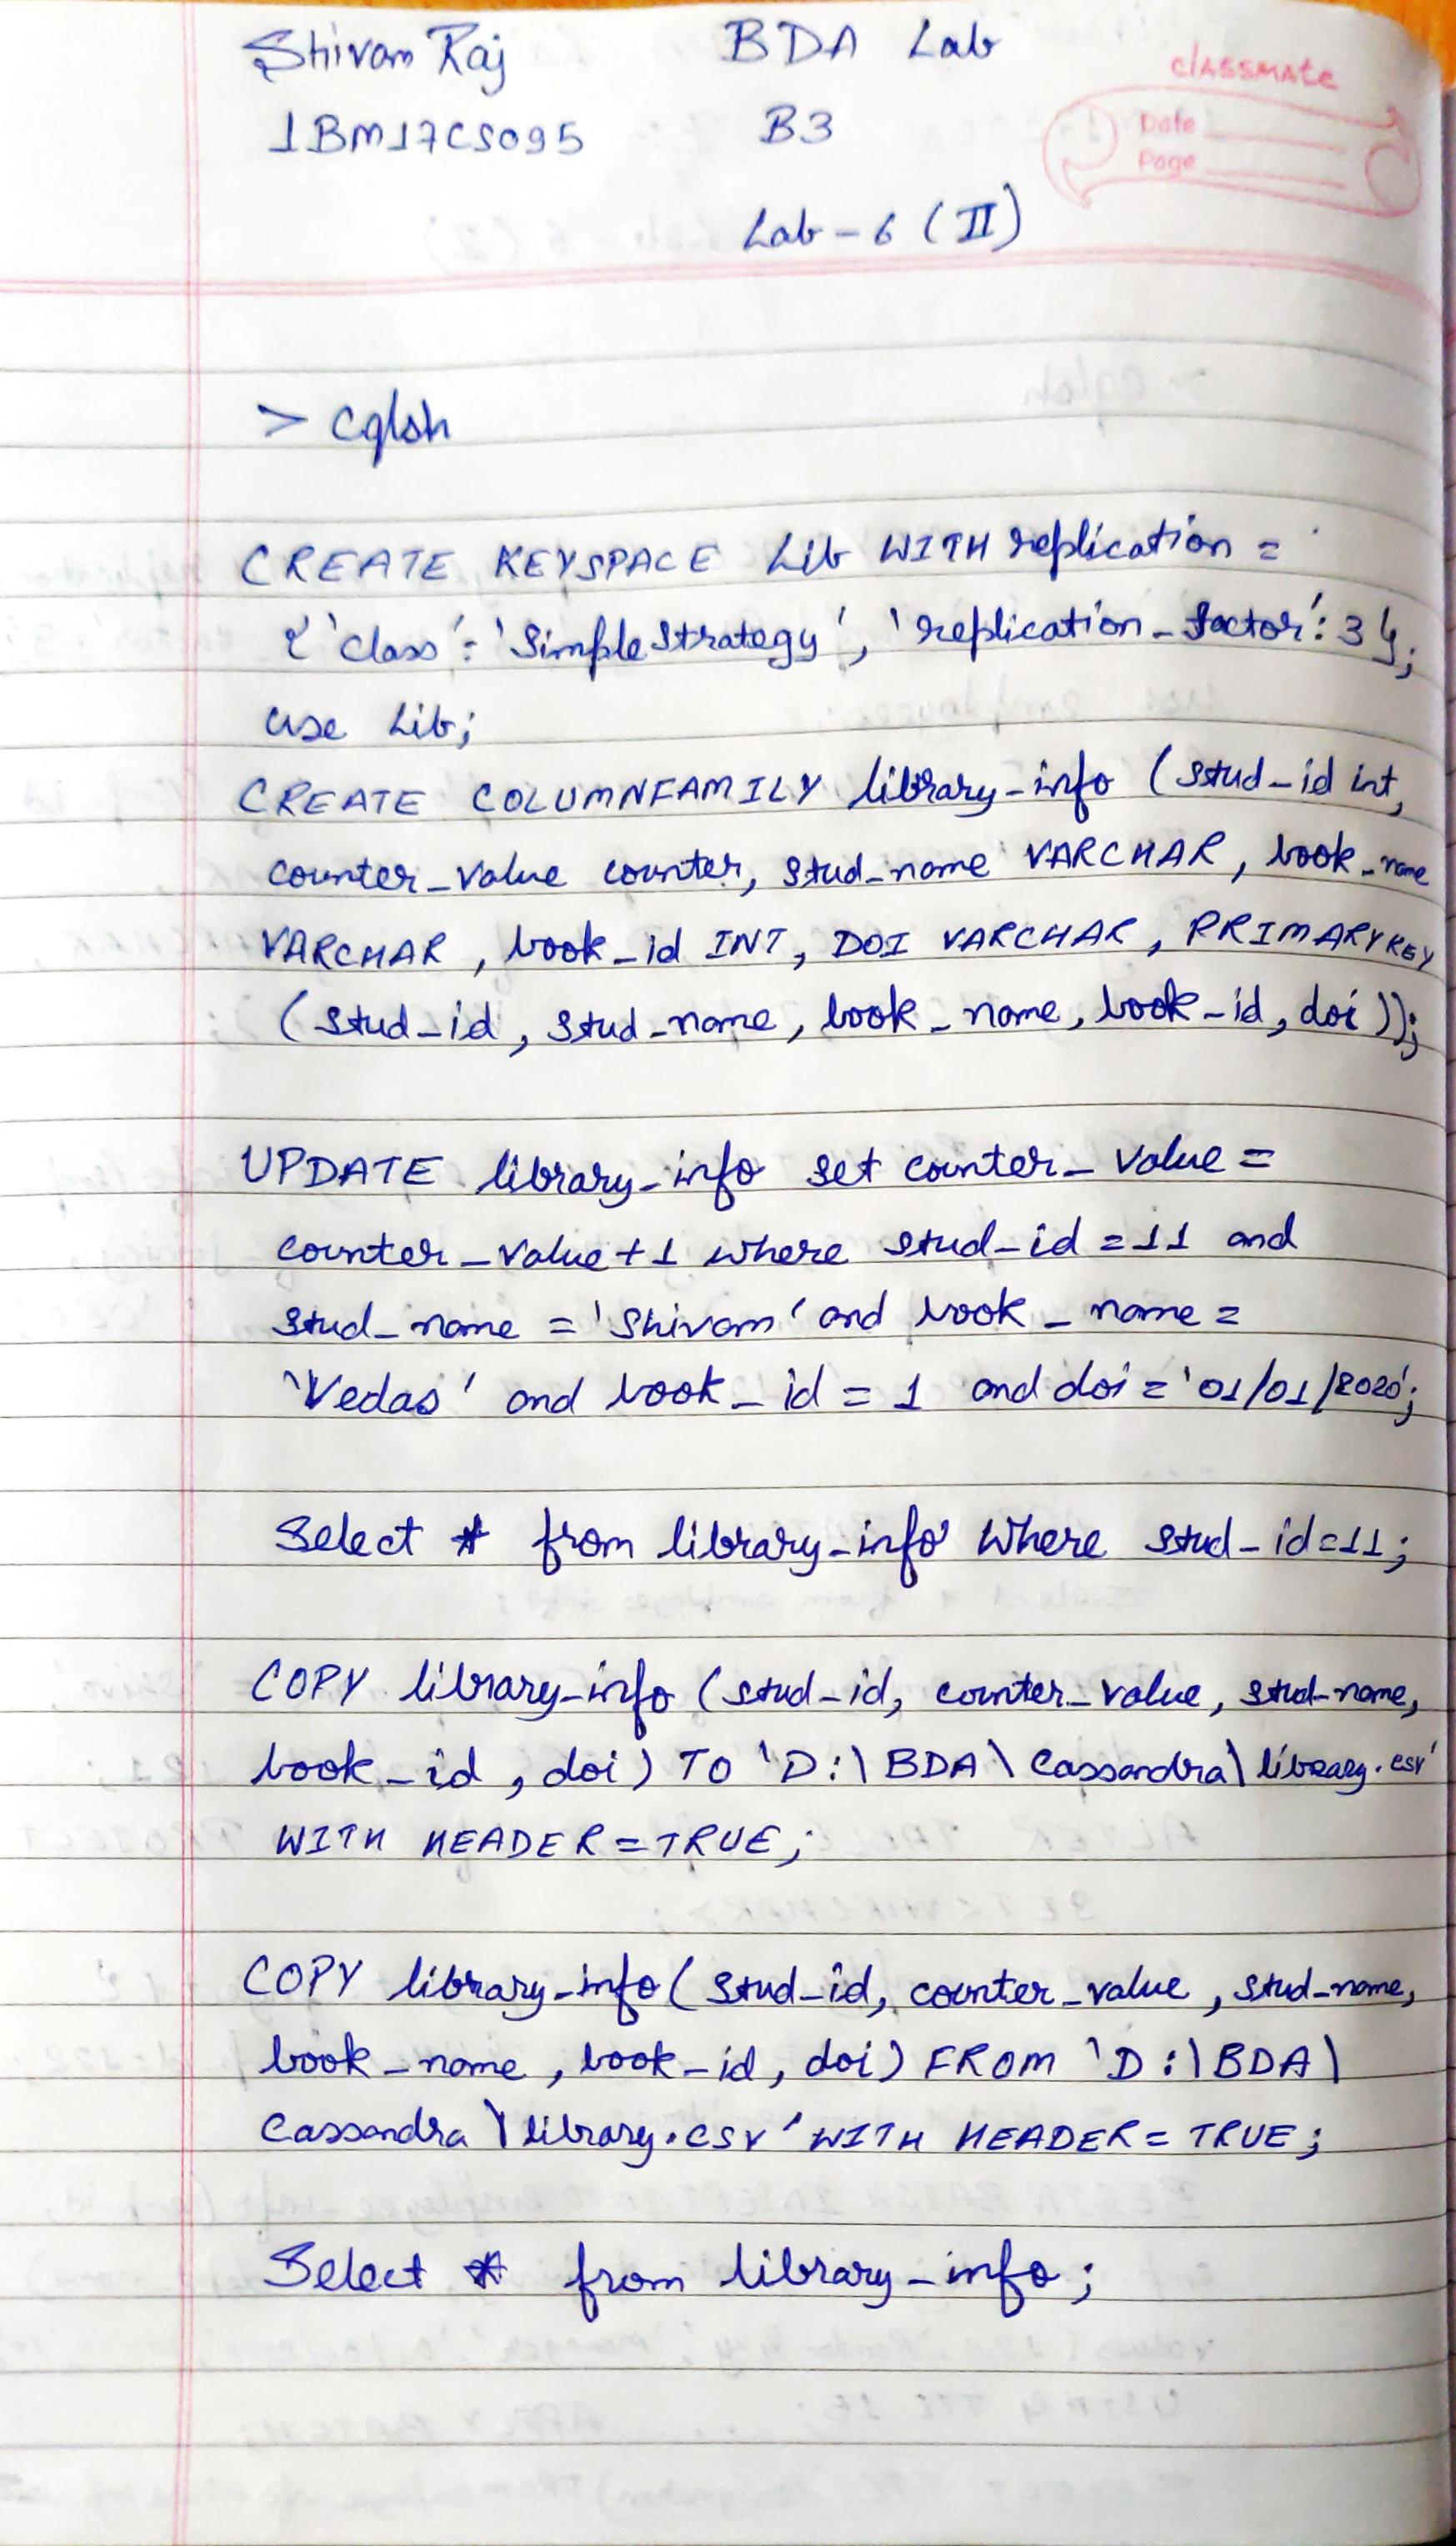 Shivam Raj BDA Lab
classmate
1BM17CS095 B3
Date
Page
Lab - 6 (II)
> cqlsh
CREATE KEYSPACE Lib WITH replication =
{'class': 'SimpleStrategy', 'replication_factor': 3};
use Lib;
CREATE COLUMNFAMILY library_info (stud_id int,
counter_value counter, stud_name VARCHAR, book_name
VARCHAR, book_id INT, DOI VARCHAR, PRIMARY KEY
(stud_id, stud_name, book_name, book_id, doi));
UPDATE library_info set counter_value =
counter_value+1 where stud_id = 11 and
stud_name = 'Shivam' and book_name =
'Vedas' and book_id = 1 and doi = '01/01/2020';
Select * from library_info where stud_id=11;
COPY library_info (stud_id, counter_value, stud_name,
book_id, doi) TO 'D:\BDA\Cassandra\library.csv'
WITH HEADER = TRUE;
COPY library_info (stud_id, counter_value, stud_name,
book_name, book_id, doi) FROM 'D:\BDA\
Cassandra\library.csv' WITH HEADER = TRUE;
Select * from library_info;